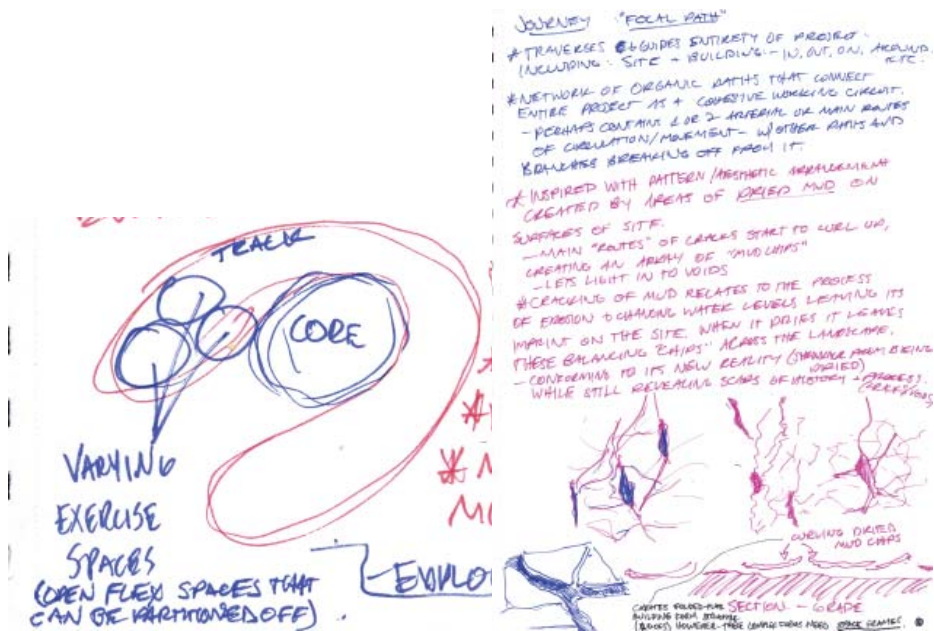 TRACK
CORE
VARYING
EXERCISE
SPACES
(OPEN FLEX SPACES THAT
CAN BE PARTITIONED OFF).
JOURNEY "FOCAL PATH"
* TRAVERSES & GUIDES ENTIRETY OF PROJECT.
INCLUDING: SITE - BUILDING - IN, OUT, ON, AROUND,
ETC.
* NETWORK OF ORGANIC PATHS THAT CONNECT
ENTIRE PROJECT AS A COHESIVE WORKING CIRCUIT.
- PERHAPS CONTAINS 1 OR 2 ARTERIAL OR MAIN ROUTES
OF CIRCULATION/MOVEMENT - W/ OTHER PATHS AND
BRANCHES BREAKING OFF FROM IT.
* INSPIRED WITH PATTERN/AESTHETIC ARRANGEMENT
CREATED BY AREAS OF DRIED MUD ON
SURFACES OF SITE.
- MAIN "ROUTES" OF CRACKS START TO CURL UP,
CREATING AN ARRAY OF "MUD CHIPS"
- LETS LIGHT IN TO VOIDS
* CRACKING OF MUD RELATES TO THE PROCESS
OF EROSION + CHANGING WATER LEVELS LEAVING ITS
IMPRINT ON THE SITE. WHEN IT DRIES IT LEAVES
THESE BALANCING "CHIPS" ACROSS THE LANDSCAPE.
- CONFORMING TO ITS NEW REALITY ( FROM BEING
DRIED)
WHILE STILL REVEALING SCARS OF HISTORY + PROCESS.
(CRACKS/VOIDS)
CURLING DRIED
MUD CHIPS
SECTION - GRADE
CREATES FOLDED
BUILDING FORM
HOWEVER THESE COMPLEX FORMS NEED SPACE FRAMES.